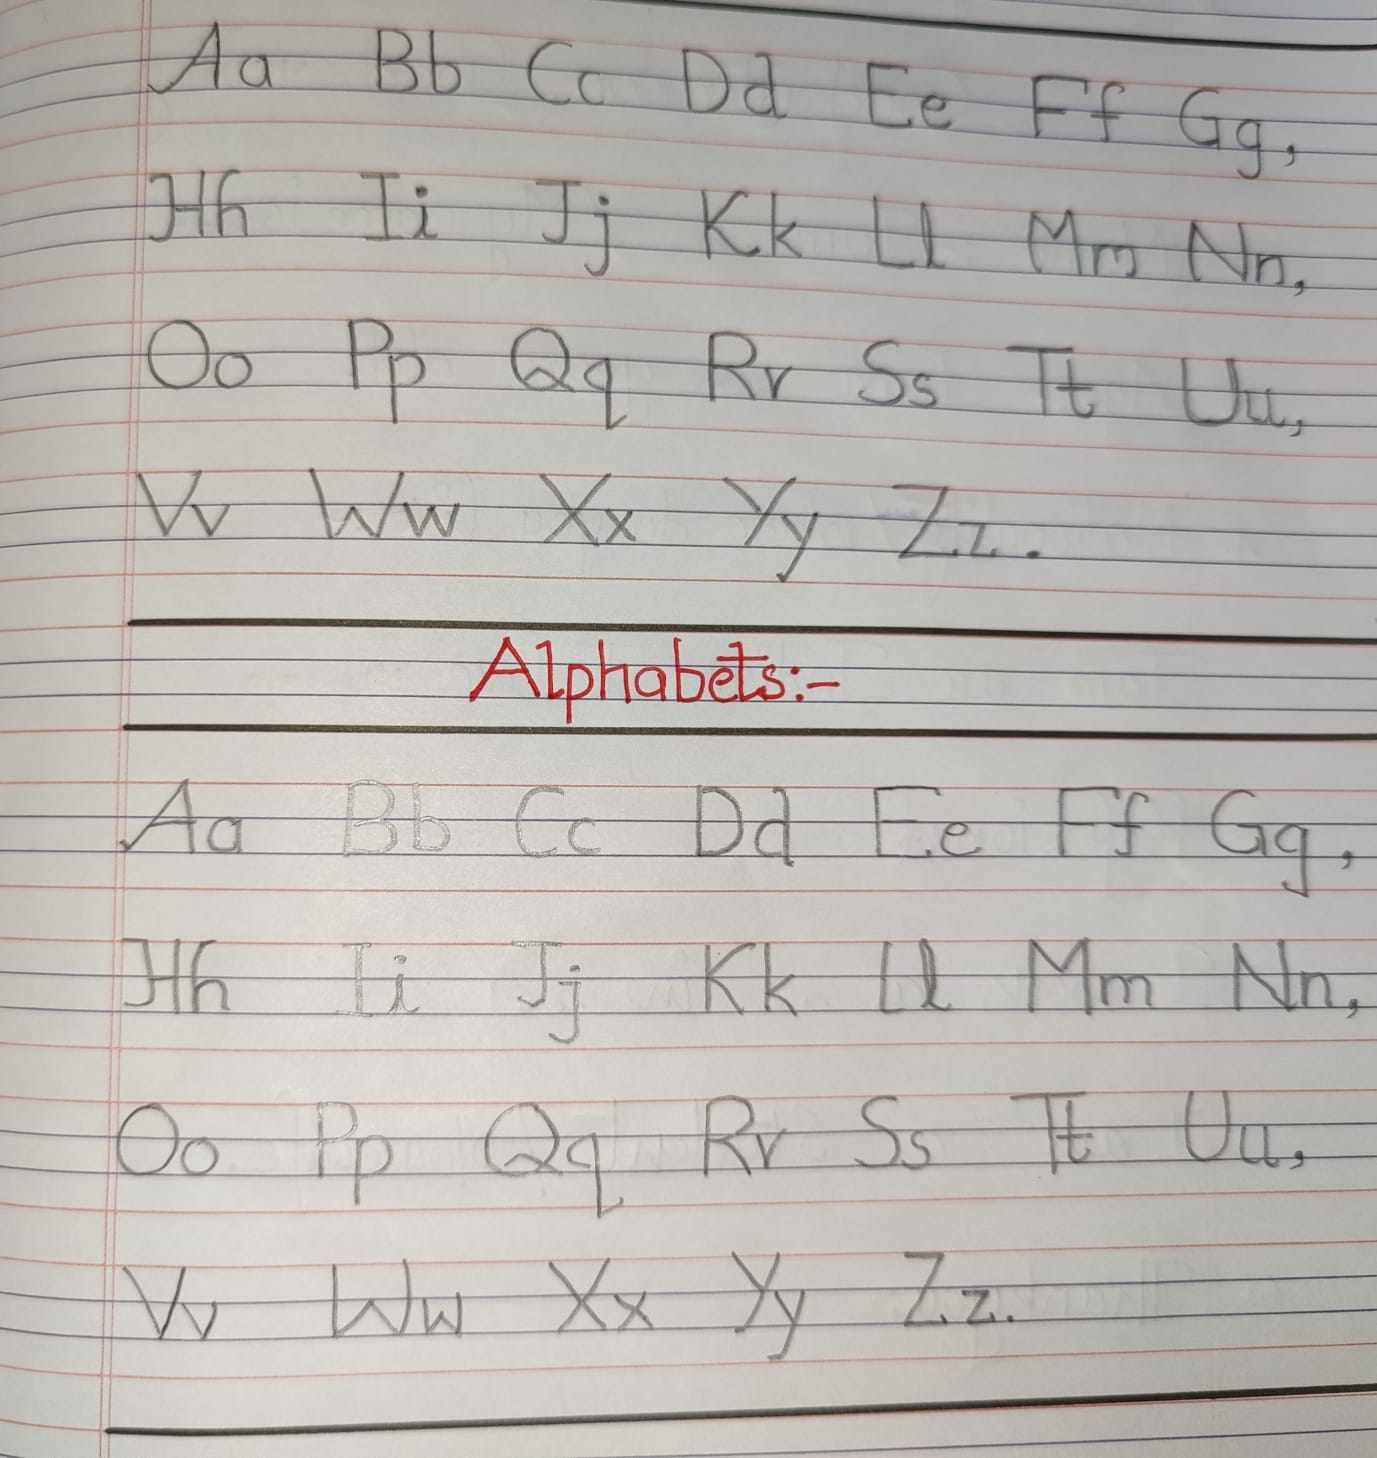 Aa Bb Cc Dd Ee Ff Gg,
Hh Ii Jj Kk Ll Mm Nn,
Oo Pp Qq Rr Ss Tt Uu,
Vv Ww Xx Yy Zz.
Alphabets:-
Aa Bb Cc Dd Ee Ff Gg,
Hh Ii Jj Kk Ll Mm Nn,
Oo Pp Qq Rr Ss Tt Uu,
Vv Ww Xx Yy Zz.